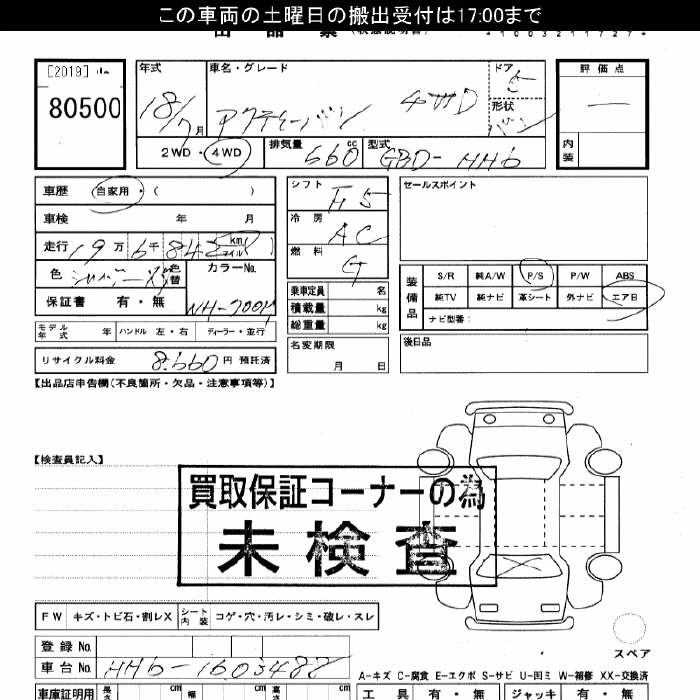 この車両の土曜日の搬出受付は17:00まで
出品票(状態説明書)
*1003211727*
[2019]
80500
年式 18/7月
車名・グレード アクティーバン 4WD
ドア 5
形状 バン
評価点 ―
内装
2WD・4WD
排気量 660cc
型式 GBD-HH6
車歴 自家用・( )
車検 年 月
走行 19万6千842km マイル
色 シルバー
色替
カラーNo. NH-700M
保証書 有・無
モデル年式 年
ハンドル 左・右
ディーラー・並行
リサイクル料金 8.660円 預託済
シフト F5
冷房 AC
燃料 G
乗車定員 名
積載量 kg
総重量 kg
名変期限 月 日
セールスポイント
装備品
S/R 純A/W P/S P/W ABS
純TV 純ナビ 革シート 外ナビ エアB
ナビ型番:
後日品
【出品店申告欄(不良箇所・欠品・注意事項等)】
【検査員記入】
買取保証コーナーの為
未検査
FW キズ・トビ石・割レX
シート内装 コゲ・穴・汚レ・シミ・破レ・スレ
スペア
登録No.
車台No. HH6-1603487
A-キズ C-腐食 E-エクボ S-サビ U-凹ミ W-補修 XX-交換済
車庫証明用 長さ cm 幅 cm 高さ cm
工具 有・無
ジャッキ 有・無